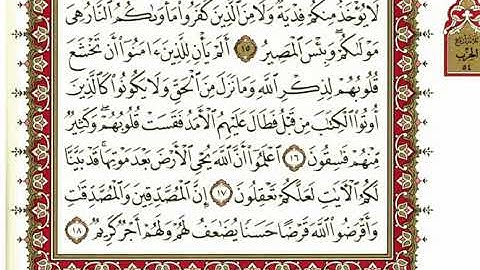 لَا يُؤْخَذُ مِنكُمْ فِدْيَةٌ وَلَا مِنَ الَّذِينَ كَفَرُوا مَأْوَىٰكُمُ النَّارُ هِىَ
مَوْلَىٰكُمْ وَبِئْسَ الْمَصِيرُ ١٥ أَلَمْ يَأْنِ لِلَّذِينَ ءَامَنُوا أَن تَخْشَعَ
قُلُوبُهُمْ لِذِكْرِ اللَّهِ وَمَا نَزَلَ مِنَ الْحَقِّ وَلَا يَكُونُوا كَالَّذِينَ
أُوتُوا الْكِتَٰبَ مِن قَبْلُ فَطَالَ عَلَيْهِمُ الْأَمَدُ فَقَسَتْ قُلُوبُهُمْ وَكَثِيرٌ
مِّنْهُمْ فَٰسِقُونَ ١٦ اعْلَمُوا أَنَّ اللَّهَ يُحْىِ الْأَرْضَ بَعْدَ مَوْتِهَا قَدْ بَيَّنَّا
لَكُمُ الْءَايَٰتِ لَعَلَّكُمْ تَعْقِلُونَ ١٧ إِنَّ الْمُصَّدِّقِينَ وَالْمُصَّدِّقَٰتِ
وَأَقْرَضُوا اللَّهَ قَرْضًا حَسَنًا يُضَٰعَفُ لَهُمْ وَلَهُمْ أَجْرٌ كَرِيمٌ ١٨
الحزب
٥٤